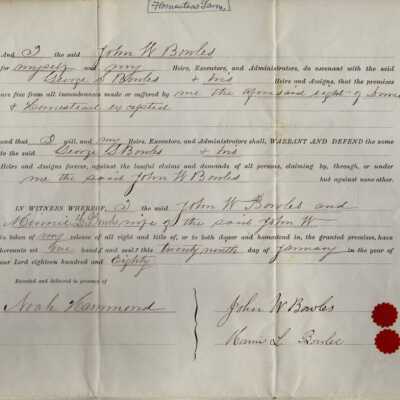 Homestead Farm
And I the said John W Bowles
for myself and my Heirs, Executors, and Administrators, do covenant with the said
George S Bowles & his Heirs and Assigns, that the premises
are free from all incumbrances made or suffered by me the aforesaid right of
& Homestead excepted
and that I will, and my Heirs, Executors, and Administrators shall, WARRANT AND DEFEND the same
to the said George S Bowles & his
Heirs and Assigns forever, against the lawful claims and demands of all persons, claiming by, through, or under
me the said John W Bowles but against none other.
IN WITNESS WHEREOF, I the said John W Bowles and
wife of the said John W
in token of my release of all right and title of, or to both dower and homestead in, the granted premises, have
hereunto set our hands and seals this twenty ninth day of January in the year of
our Lord eighteen hundred and Eighty
Executed and delivered in presence of
Noah Hammond
John W Bowles
L Bowles